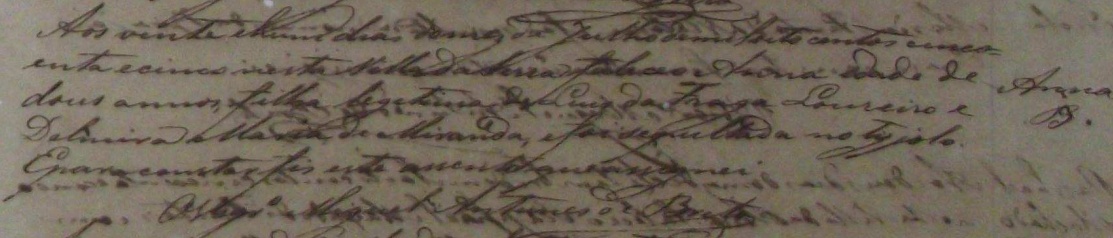 Aos vinte e hum dias do mes de Julho de mil oito centos cinco-
enta e cinco nesta Villa da Serra faleceo Anna idade de
dous annos, filha legitima de Luis da Fraga Loureiro e
Delmira Maria de Miranda, e foi sepultada no tejolo.
E para constar fis este assento que assignei.
O Vigrº Miguel Antunes de Brito
Anna
B.